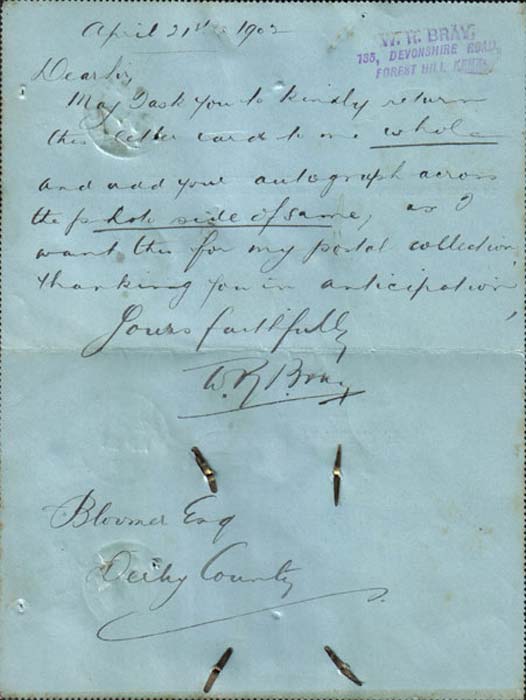 April 21st 1902
W. R. BRAY,
135, DEVONSHIRE ROAD,
FOREST HILL, KENT.
Dear Sir,
May I ask you to kindly return
this letter card to me whole
and add your autograph across
the photo side of same, as I
want this for my postal collection,
thanking you in anticipation,
Yours faithfully
W. R. Bray
Bloomer Esq
Derby County